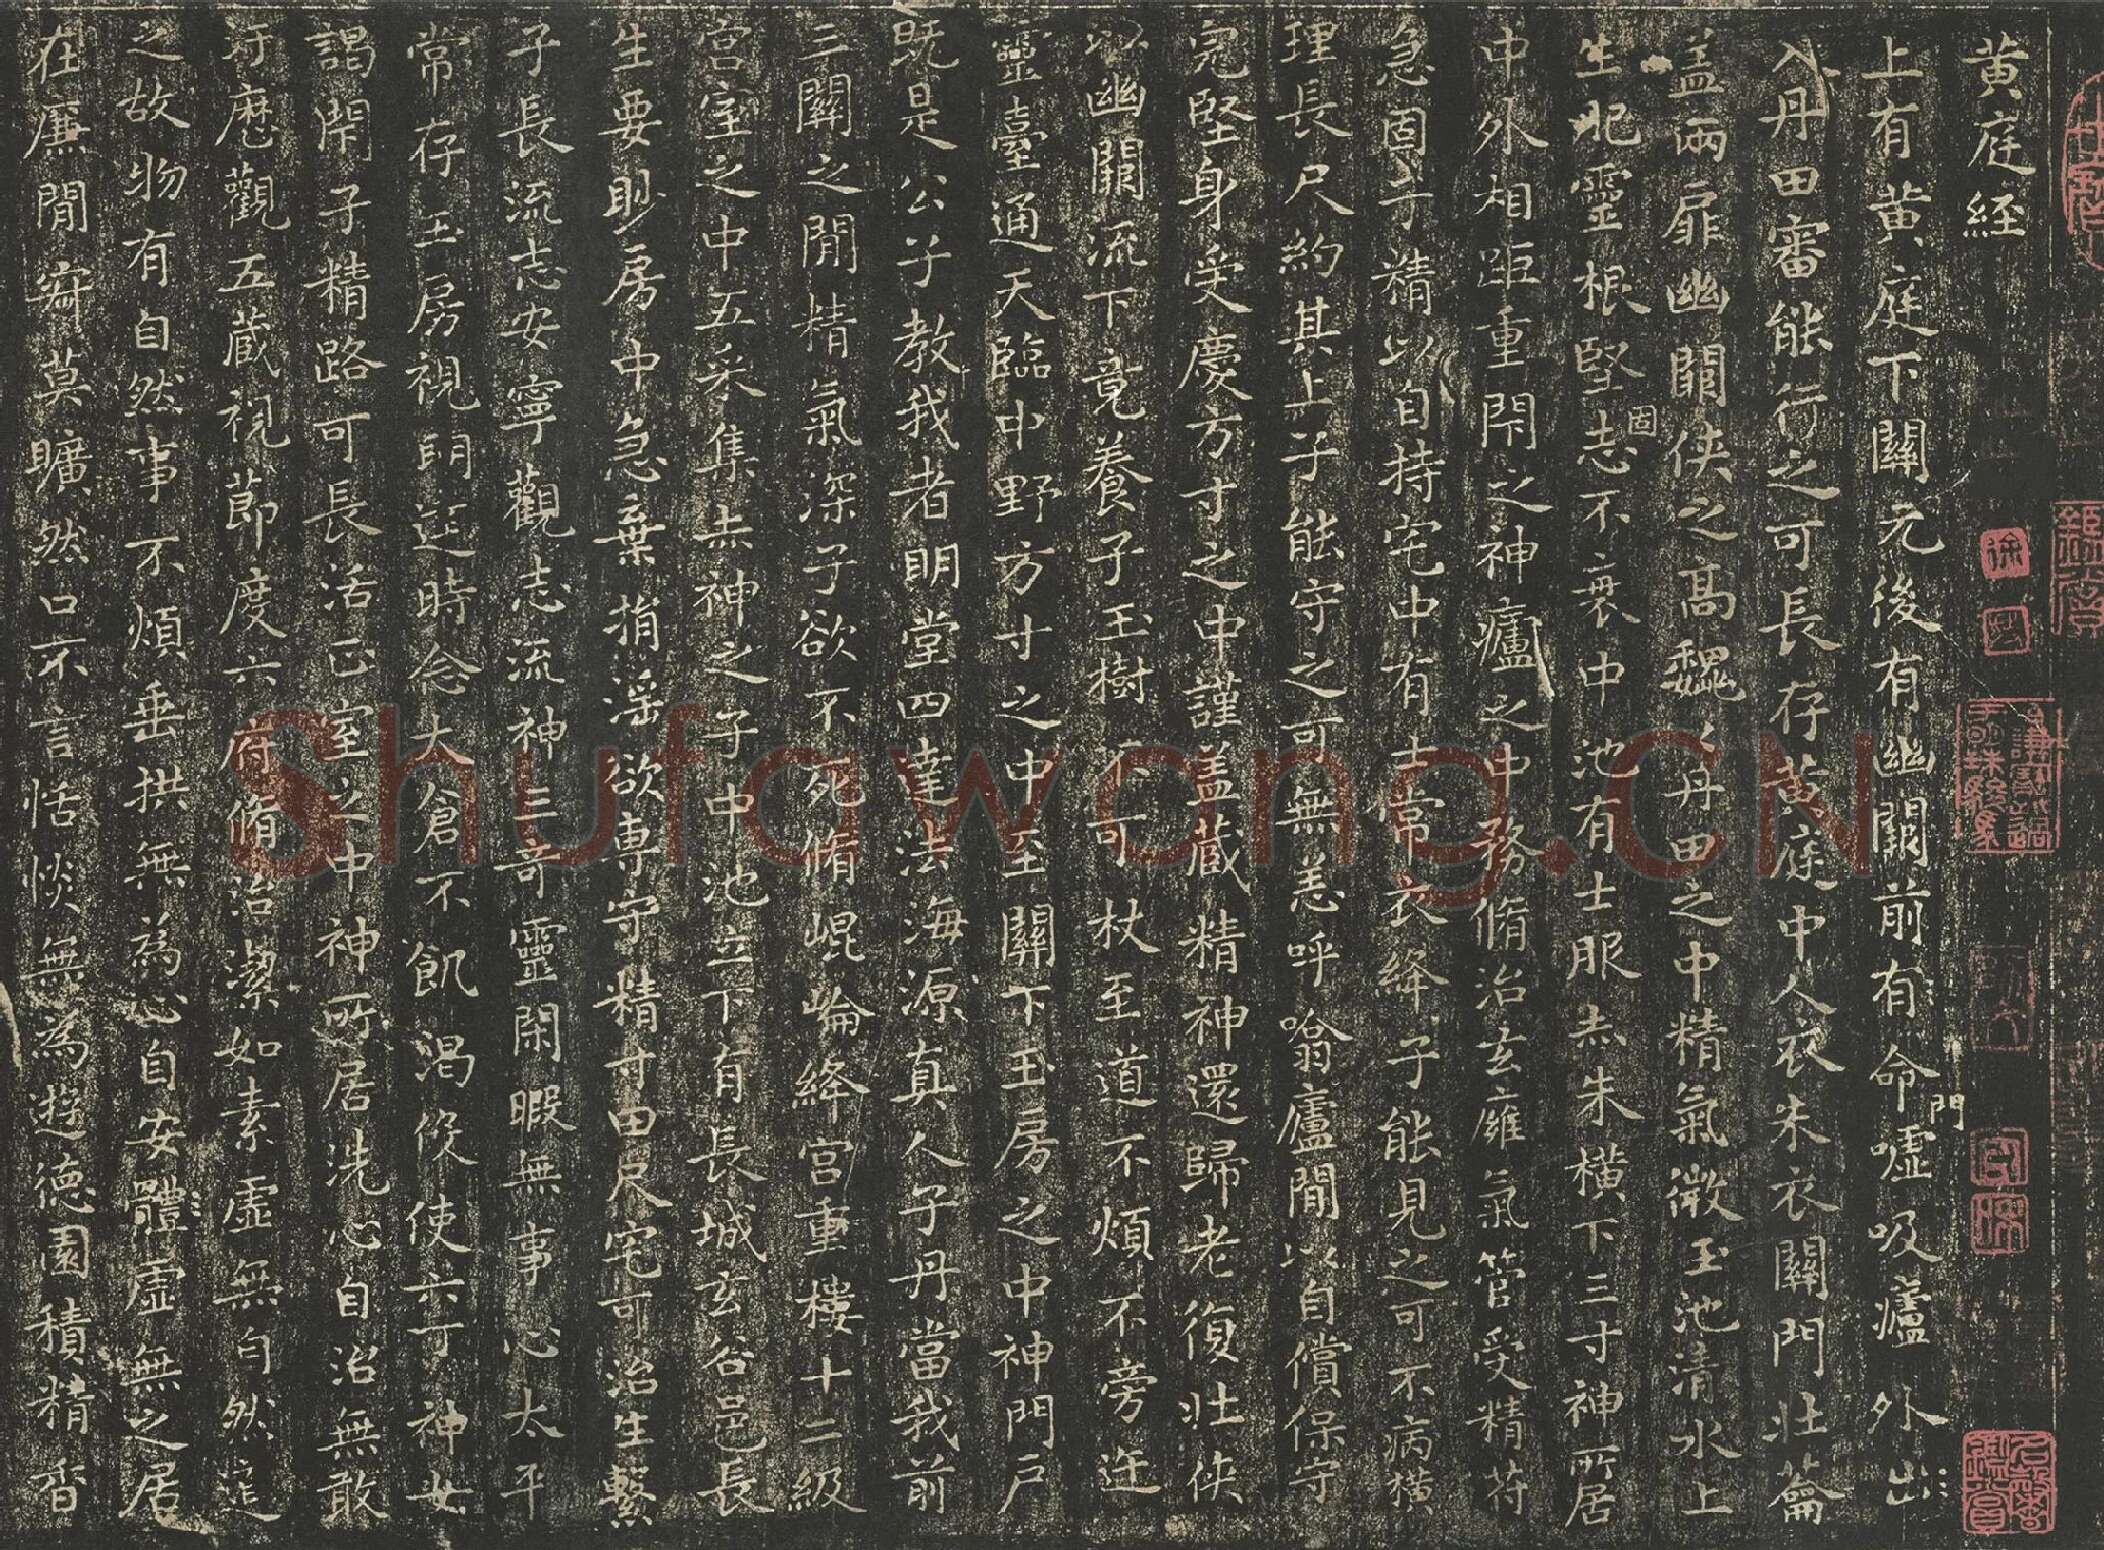 黄庭經
上有黄庭下關元後有幽闕前有命門噓吸廬外出
入丹田審能行之可長存黄庭中人衣朱衣關門壯籥
盖兩扉幽闕侠之高巍巍丹田之中精氣微玉池清水上
生肥靈根堅固志不衰中池有士服赤朱横下三寸神所居
中外相距重閇之神廬之中務脩治玄廱氣管受精符
急固子精以自持宅中有士常衣絳子能見之可不病横
理長尺約其上子能守之可無恙呼噏廬閒以自償保守
完堅身受慶方寸之中謹盖藏精神還歸老復壯侠
以幽闕流下竟養子玉樹不可杖至道不煩不旁迕
靈臺通天臨中野方寸之中至關下玉房之中神門户
既是公子教我者明堂四達法海源真人子丹當我前
三關之閒精氣深子欲不死脩崐崘絳宫重樓十二級
宫室之中五采集赤神之子中池立下有長城玄谷邑長
生要眇房中急棄捐淫欲専守精寸田尺宅可治生繫
子長流志安寧觀志流神三奇靈閑暇無事心太平
常存玉房視明逹時念大倉不飢渴役使六丁神女
謁閇子精路可長活正室之中神所居洗心自治無敢
汙歷觀五藏視節度六府脩治潔如素虚無自然道
之故物有自然事不煩垂拱無為心自安體虚無之居
在廉閒寂莫曠然口不言恬惔無為遊徳園積精香
Shufawang.CN